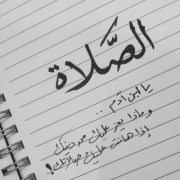 الصَّلَاة
يا ابن آدم ..
وماذا يعز عليك من دينك
إذا هانت عليك صلاتك!